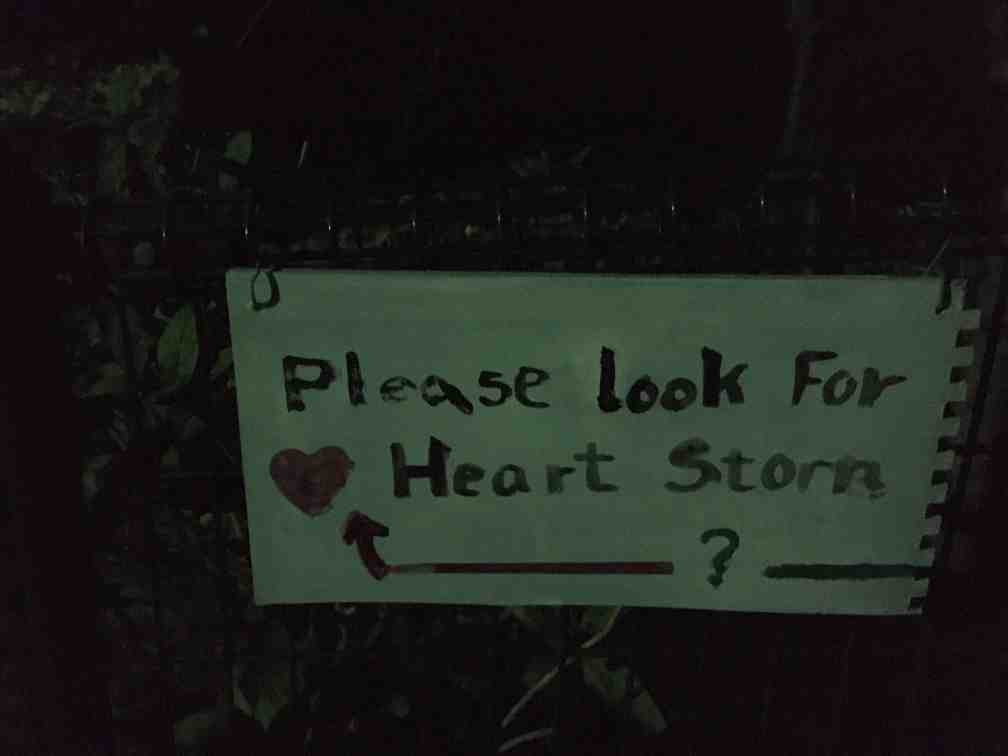 Please look For
Heart Storm
?